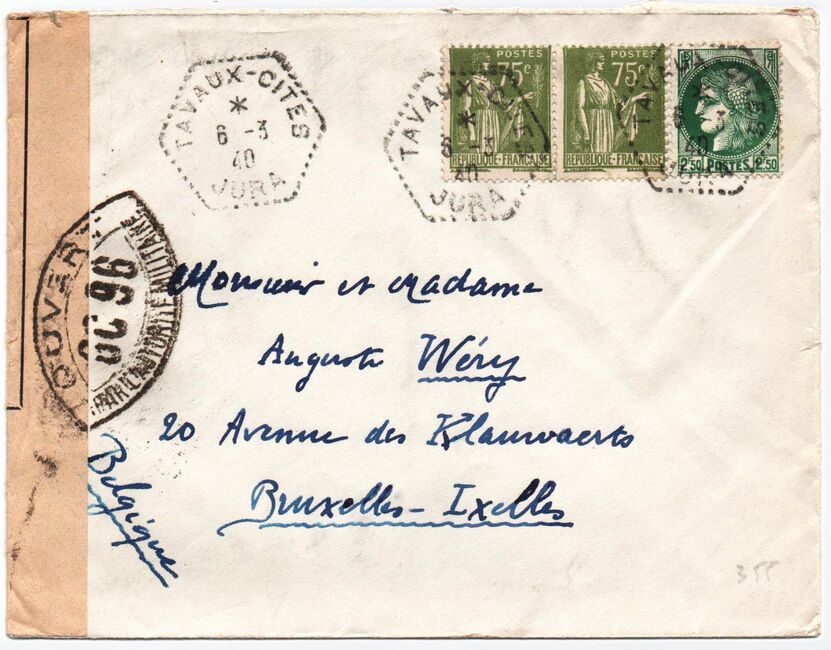 TAVAUX-CITES
*
6 -3
40
JURA
TAVAUX-CITES
*
6 -3
40
JURA
POSTES
75c
REPUBLIQUE-FRANÇAISE
POSTES
75c
REPUBLIQUE-FRANÇAISE
2F50 POSTES 2F50
TAVAUX-CITES
*
6 -3
40
JURA
OUVERT
PAR L'AUTORITÉ MILITAIRE
Monsieur et Madame
Auguste Wéry
20 Avenue des Klauwaerts
Bruxelles-Ixelles
Belgique
355